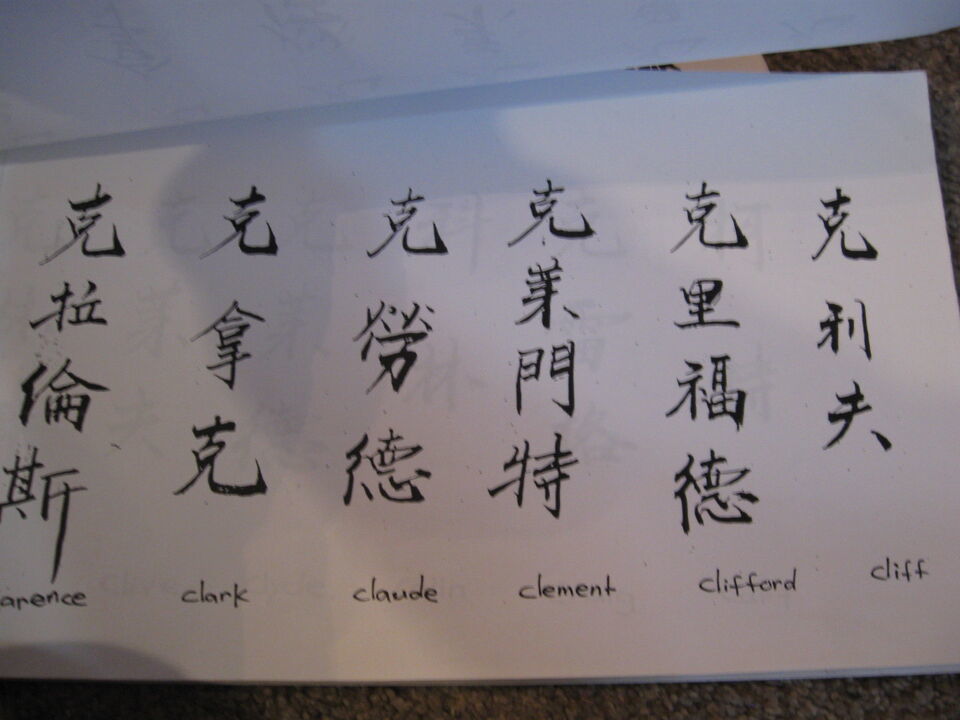 克拉倫斯
克拿克
克勞德
克萊門特
克里福德
克利夫
arence
clark
claude
clement
clifford
cliff